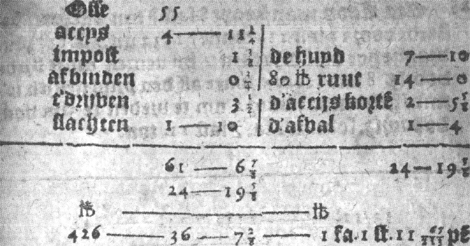 Osse 55
accijs 4 — 11 1/4
impost 1 3/4 de huyd 7 — 10
afbinden 0 1/4 80 ℔ ruut 14 — 0
t'drijven 3 1/2 d'accijs korte 2 — 5 5/8
slachten 1 — 10 d'afval 1 — 4
61 — 6 7/8 24 — 19 5/8
24 — 19 5/8
℔ — ℔
426 — 36 — 7 2/8 — 1 sa. 1 st. 11